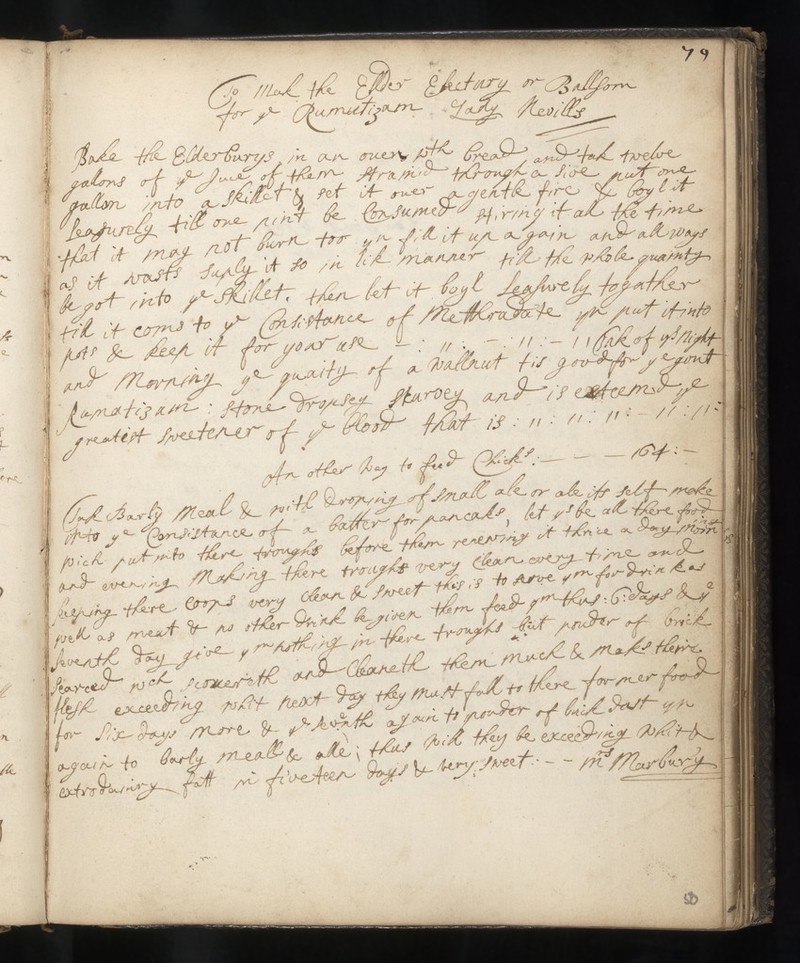 79
To Mak the Ellder Electuary or Ballsom
for ye Rumutizam Lady Nevills
Bake the Elderburys in an ouen wth bread and tak twelve
galons of ye Juce of them straind through a sive put one
gallon into a skillet & set it ouer a gentle fire & boyl it
Leasurely till one pint be Consumed stiring it all the time
that it may not burn too yn fill it up again and all ways
as it wasts suply it so in lik manner till the whole quantity
be got into ye skillet. then let it boyl Leasurely togather
till it coms to ye Consistance of Methradate yn put it into
pots & keep it for your use - : 11 : - : 11 : - 11 Tak of ys Night
and Morning ye quaity of a wallnut tis good for ye gout
Rumatizam : stone Dropsey skurvey and is exteemd ye
greatest sweetener of ye blood that is : 11 : 11 : 11 : - 11 : 11 :
An other way to feed Chicks : - - - 164 : -
Tak Barly Meal & with Droping of small ale or ale its self make
into ye Consistance of a batter for pancaks, let ys be all there food
wich put into there troughs before them renewing it thrice a day morn
and evening Making there troughs very Clean every time and
keeping there Coops very Clean & sweet this is to serve ym for drink as
well as meat & no other drink be given them feed ym thus : 6 : days & ye
seventh day give ym nothing in there troughs but pouder of brick
searced wch scouereth and Cleaneth them much & maks there
flesh exceeding whit next day they must fall to there former food
for six days more & ye seventh again to pouder of brick dust yn
again to barly meall & alle ; thus will they be exceeding whit &
extrodainry fatt in fiveteen days & very sweet : - - mrs Marbury